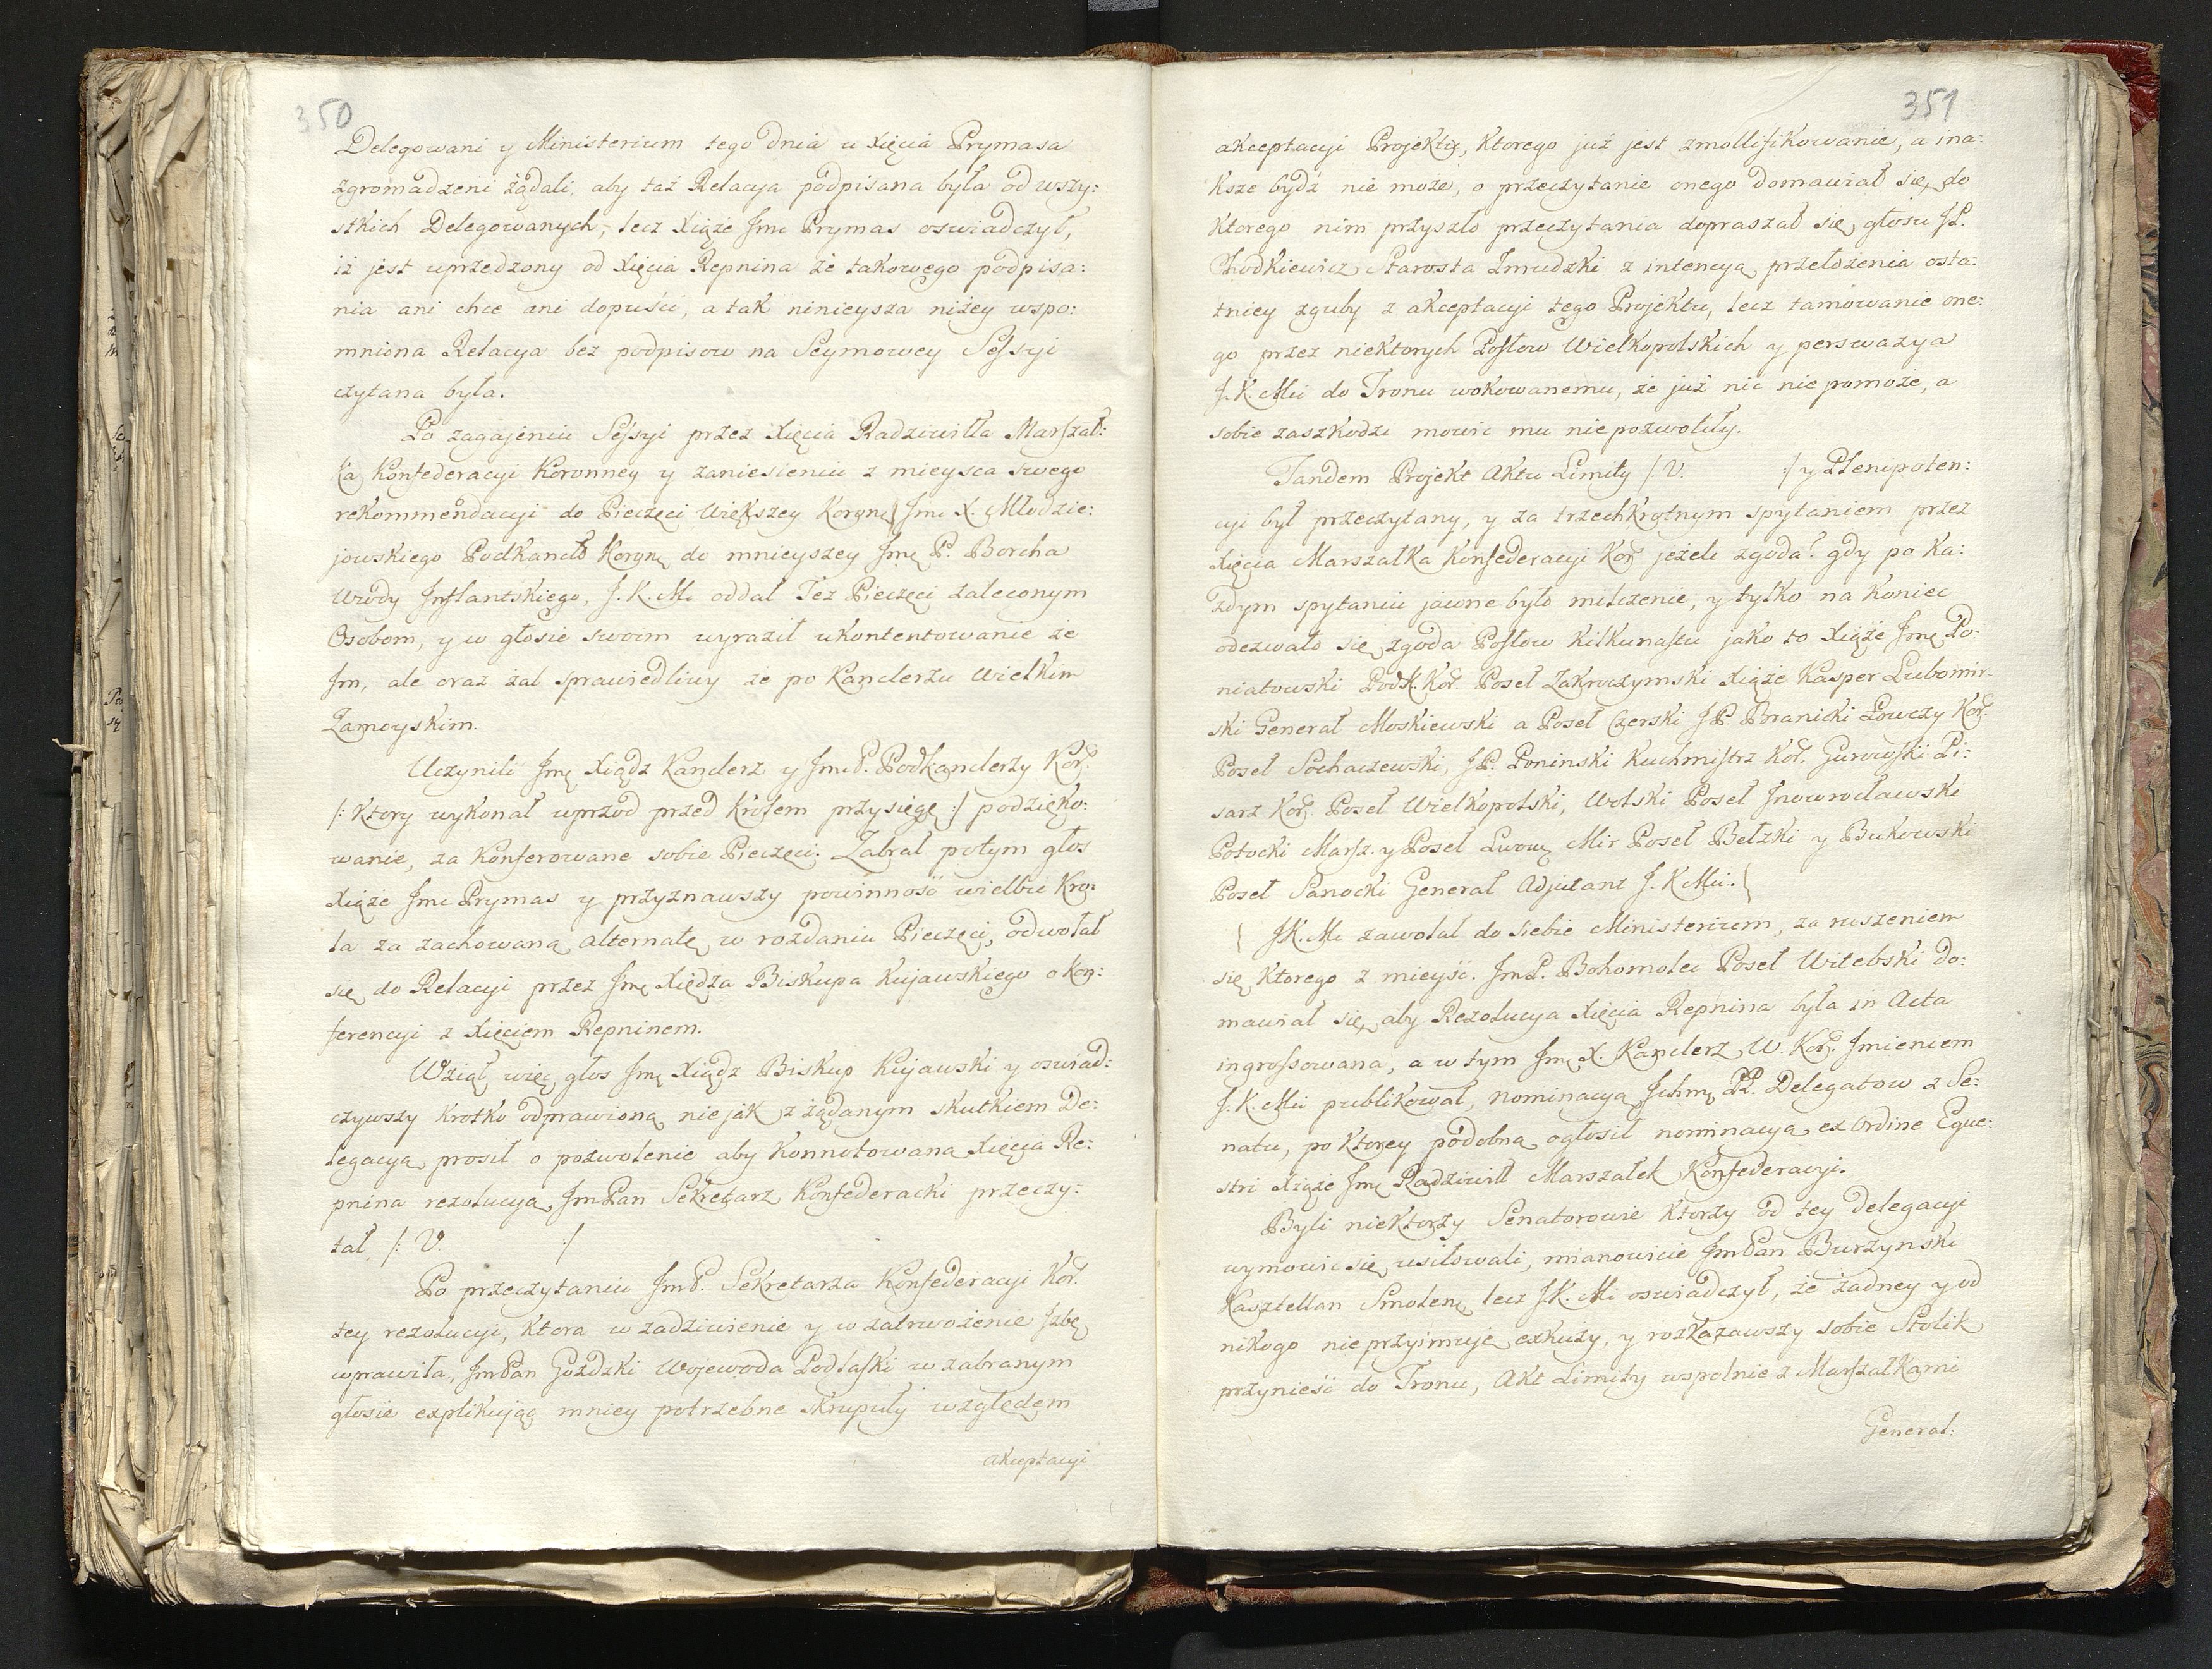 350
Delegowani y Ministerium tego dnia u Xięcia Prymasa
zgromadzeni żądali, aby taż Relacya podpisana była od wszy:
stkich Delegowanych, lecz Xiąże Jmc Prymas oswiadczył,
iż jest uprzedzony od Xięcia Repnina że takowego podpisa:
nia ani chce ani dopuści, a tak ninieysza niżey wspo:
mniona Relacya bez podpisow na Seymowey Sessyi
czytana była.
Po zagajeniu Sessyi przez Xięcia Radziwiłła Marszał:
ka Konfederacyi Koronney y zaniesieniu z mieysca swego
rekommendacyi do Pieczęci Większey Koronę Jmc X. Młodzie:
jowskiego Podkancło Koronę do mnieyszey Jmę P. Borcha
Wwody Inflantskiego, J. K. Mc oddał Też Pieczęci zaleconym
Osobom, y w głosie swoim wyraził ukontentowanie że
Im, ale oraz żal sprawiedliwy że po Kanclerzu Wielkim
Zamoyskim.
Uczynili Jmę Xiądz Kanclerz y Jmc P. Podkanclerzy Kor.
/: Ktory wykonał uprzod przed Krolem przysięgę :/ podzięko:
wanie, za konferowane sobie Pieczęci; Zabrał potym głos
Xiąże Jmc Prymas y przyznawszy powinność wielbić Kro:
la za zachowaną alternatę w rozdaniu Pieczęci, odwołał
się do Relacyi przez Jmę Xiędza Biskupa Kujawskiego o kon:
ferencyi z Xięciem Repninem.
Wziął więc głos Jmę Xiądz Biskup Kujawski y oswiad:
czywszy krotko odprawioną nie jak z żądanym skutkiem De:
legacyą, prosił o pozwolenie aby konnotowaną Xięcia Re:
pnina rezolucyą JmPan Sekretarz Konfederacki przeczy:
tał, /: V. :/
Po przeczytaniu JmP. Sekretarza Konfederacyi Kor.
tey rezolucyi, ktora w zadziwienie y w zatrwożenie Izbę
wprawiła, JmPan Gozdzki Wojewoda Podlaski w zabranym
głosie explikując mniey potrzebne skrupuły względem
akceptacyi
351
akceptacyi Projektu, ktorego już jest zmollifikowanie, a ina:
ksze bydź nie może, o przeczytanie onego domawiał się, do
ktorego nim przyszło przeczytania dopraszał się głosu J P.
Chodkiewicz Starosta Zmudzki z intencyą przełożenia osta:
tniey zguby z akceptacyi tego Projektu, lecz tamowanie one:
go przez niektorych Posłow Wielkopolskich y perswazya
J. K. Mci do Tronu wokowanemu, że już nic nie pomoże, a
sobie zaszkodzi mowić mu nie pozwoliły.
Tandem Projekt Aktu Limity /: V. :/ y Plenipoten:
cyi był przeczytany, y za trzechkrotnym spytaniem przez
Xięcia Marszałka Konfederacyi Kor jeżeli zgoda? gdy po ka:
żdym spytaniu jawne było milczenie, y tylko na koniec
odezwało się zgoda Posłow kilkunastu jako to Xiąże Jmę Po:
niatowski Podk. Kor. Poseł Zakroczymski Xiąże Kasper Lubomir-
ski Generał Moskiewski a Poseł Czerski J P. Branicki Łowczy Kor.
Poseł Sochaczewski, J P. Poninski Kuchmistrz Kor. Gurowski Pi:
sarz Kor. Poseł Wielkopolski, Wolski Poseł Inowrocławski
Potocki Marsz. y Poseł Lwowę Mir Poseł Bełzki y Bukowski
Poseł Sanocki Generał Adjutant J. K Mci.
J.K. Mc zawołał do siebie Ministerium, za ruszeniem
się ktorego z mieyść. JmP. Bohomolec Poseł Witebski do:
mawiał się, aby Rezolucya Xięcia Repnina była in Acta
ingrossowana, a w tym Jmę X. Kanclerz W. Kor. Imieniem
J. K. Mci publikował, nominacyą Ichmę PP. Delegatow z Se:
natu, po ktorey podobną ogłosił nominacyą ex Ordine Eque:
stri Xiąże Jmę Radziwiłł Marszałek Konfederacyi.
Byli niektorzy Senatorowie ktorzy od tey delegacyi
wymowić się usiłowali, mianowicie JmPan Burzynski
Kasztellan Smolenę, lecz J.K. Mc oswiadczył, że żadney y od
nikogo nie przyimuje exkuzy, y rozkazawszy sobie Stolik
przynieść do Tronu, Akt Limity wspolnie z Marszałkami
General: